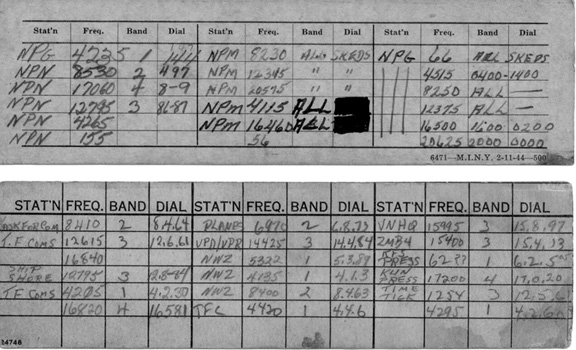 Stat'n Freq. Band Dial Stat'n Freq. Band Dial Stat'n Freq. Band Dial
NPG 4235 1 NPM 8230 ALL SKEDS NPG 66 ALL SKEDS
NPN 8530 2 497 NPM 12345 " " 4515 0400-1400
NPN 17060 4 8-9 NPM 20575 " " 8250 ALL —
NPN 12795 3 86-87 NPM 4115 ALL 12375 ALL —
NPN 4265 NPM 16460 ALL 16500 1600 0200
NPN 155 56 20625 2000 0000
6471—M.I.N.Y. 2-11-44—500
STAT'N FREQ. BAND DIAL STAT'N FREQ. BAND DIAL STAT'N FREQ. BAND DIAL
8410 2 8.4.64 PLANES 6970 2 6.8.93 VNHQ 15995 3 15.8.97
T.F. COMS 12615 3 12.6.61 VPD/VPR 14425 3 14.4.84 2MB4 15400 3 15.4.
16840 NWZ 5322 1 5.3.87 PRESS
SHIP SHORE 12795 3 NWZ 4135 4.1.3 PRESS 17200 4 17.0.20
TF COMS 4205 1 4.2.30 NWZ 8400 2 8.4.63 TIME TICK 1254 3
16820 4 16581 TFC 4420 1 4.4.6 4295 1
14746